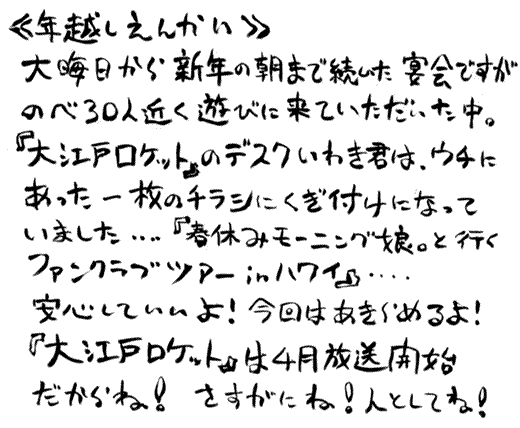 ≪年越しえんかい≫
大晦日から新年の朝まで続いた宴会ですが
のべ30人近く遊びに来ていただいた中。
『大江戸ロケット』のデスクいわき君は、ウチに
あった一枚のチラシにくぎ付けになって
いました‥‥『春休みモーニング娘。と行く
ファンクラブツアーinハワイ』‥‥
安心していいよ！今回はあきらめるよ！
『大江戸ロケット』は4月放送開始
だからね！さすがにね！人としてね！